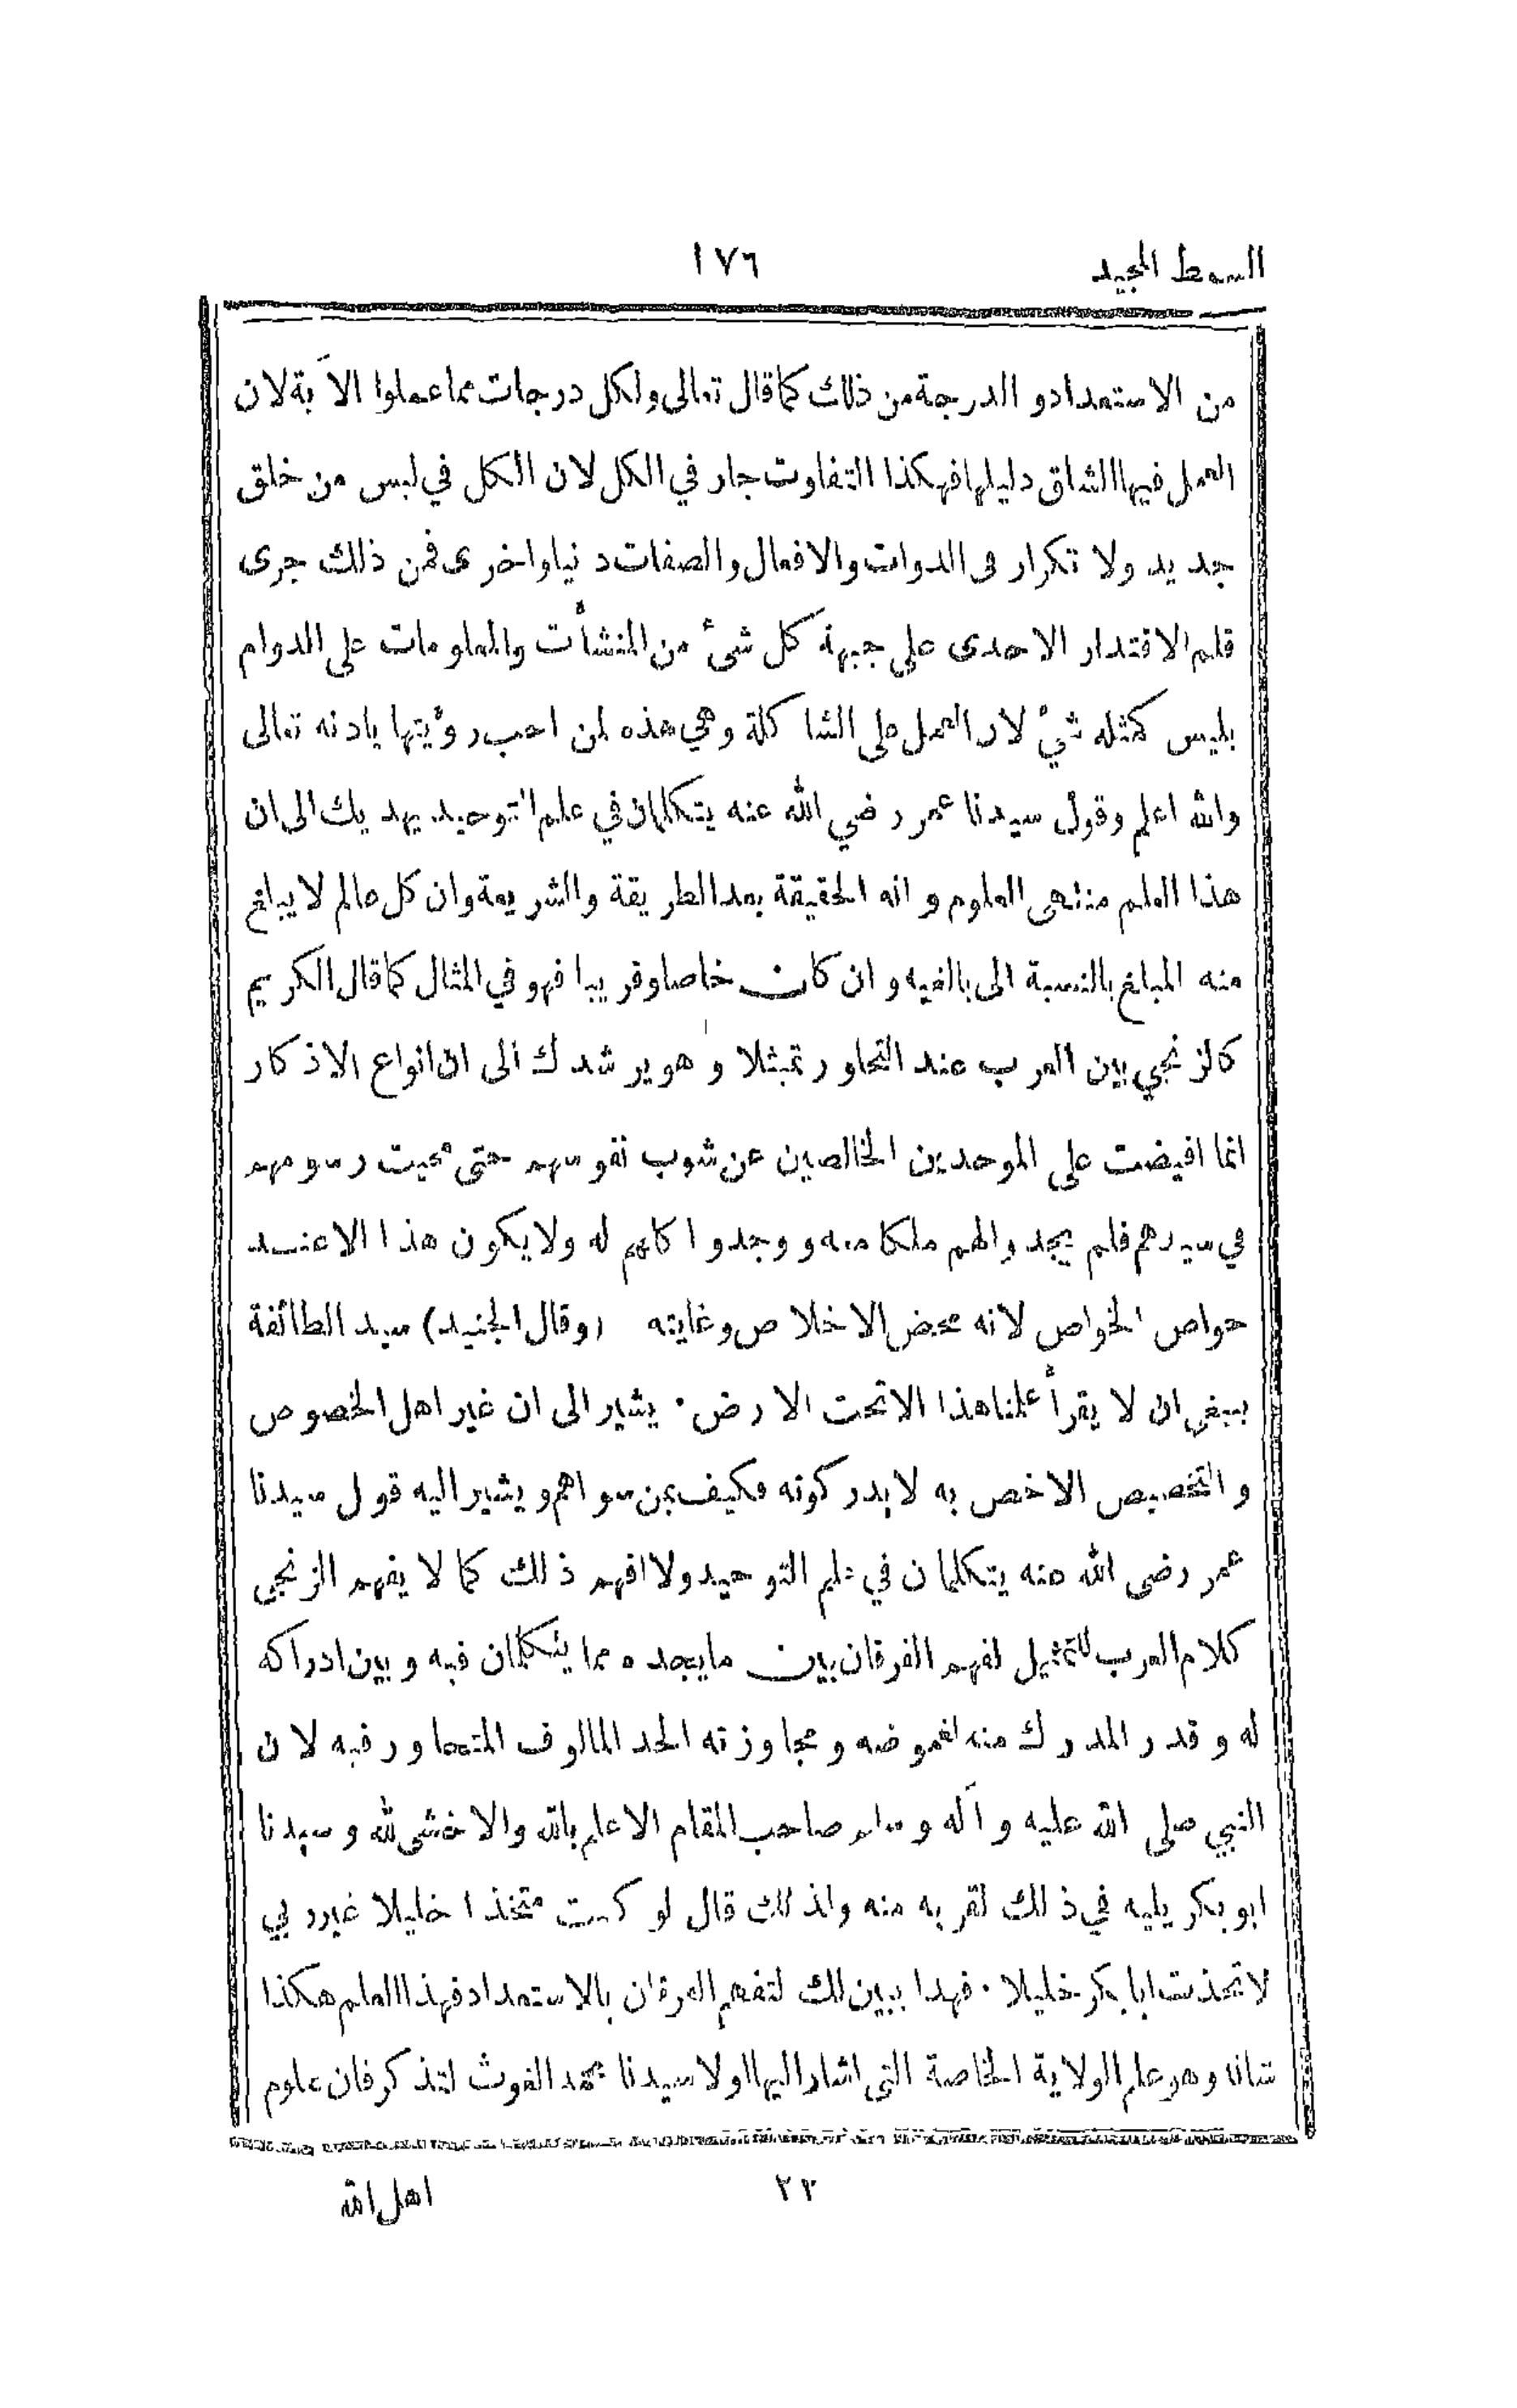 السمط المجيد ١٧٦
من الاستعداد و الدرجة من ذلك كما قال تعالى ولكل درجات مما عملوا الآية لان
العمل فيها الشاق دليلها فهكذا التفاوت جار في الكل لان الكل في لبس من خلق
جديد ولا تكرار فى الذوات والافعال والصفات دنيا واخرى فمن ذلك جرى
قلم الاقتدار الاحدى على جبهة كل شئ من المنشأت والمعلومات على الدوام
بليس كمثله شئ لان العمل على الشاكلة وهي هذه لمن احب رؤيتها باذنه تعالى
والله اعلم وقول سيدنا عمر رضي الله عنه يتكلمان في علم التوحيد يهديك الى ان
هذا العلم منتهى العلوم وانه الحقيقة بعد الطريقة والشريعة وان كل عالم لا يبلغ
منه المبلغ بالنسبة الى بالغيه وان كان خاصا وقريبا فهو في المثال كما قال الكريم
كالزنجي بين العرب عند التحاور تمثلا وهو يرشدك الى ان انواع الاذكار
انما افيضت على الموحدين الخالصين عن شوب نفوسهم حتى محيت رسومهم
في سيرهم فلم يجدوا لهم ملكا منه ووجدوا كلهم له ولا يكون هذا الا عند
خواص الخواص لانه محض الاخلاص وغايته (وقال الجنيد) سيد الطائفة
ينبغى ان لا يقرأ علمنا هذا الا تحت الارض ٠ يشير الى ان غير اهل الخصوص
والتخصيص الاخص به لا يدركونه فكيف بمن سواهم ويشير اليه قول سيدنا
عمر رضى الله عنه يتكلمان في علم التوحيد ولا افهم ذلك كما لا يفهم الزنجى
كلام العرب للتمثيل لفهم الفرقان بين ما يجده مما يتكلمان فيه وبين ادراكه
له وقدر المدرك منه لغموضه ومجاوزته الحد المالوف المتحاور فيه لان
النبي صلى الله عليه وآله وسلم صاحب المقام الاعلم بالله والاخشى لله وسيدنا
ابوبكر يليه في ذلك لقربه منه ولذلك قال لو كنت متخذا خليلا غير ربي
لاتخذت ابا بكر خليلا ٠ فهذا يبين لك لتفهم الفرقان بالاستعداد فهذا العلم هكذا
شانه وهو علم الولاية الخاصة التى اشار اليها اولا سيدنا محمد الغوث لتذكر فان علوم
٢٢ اهل الله